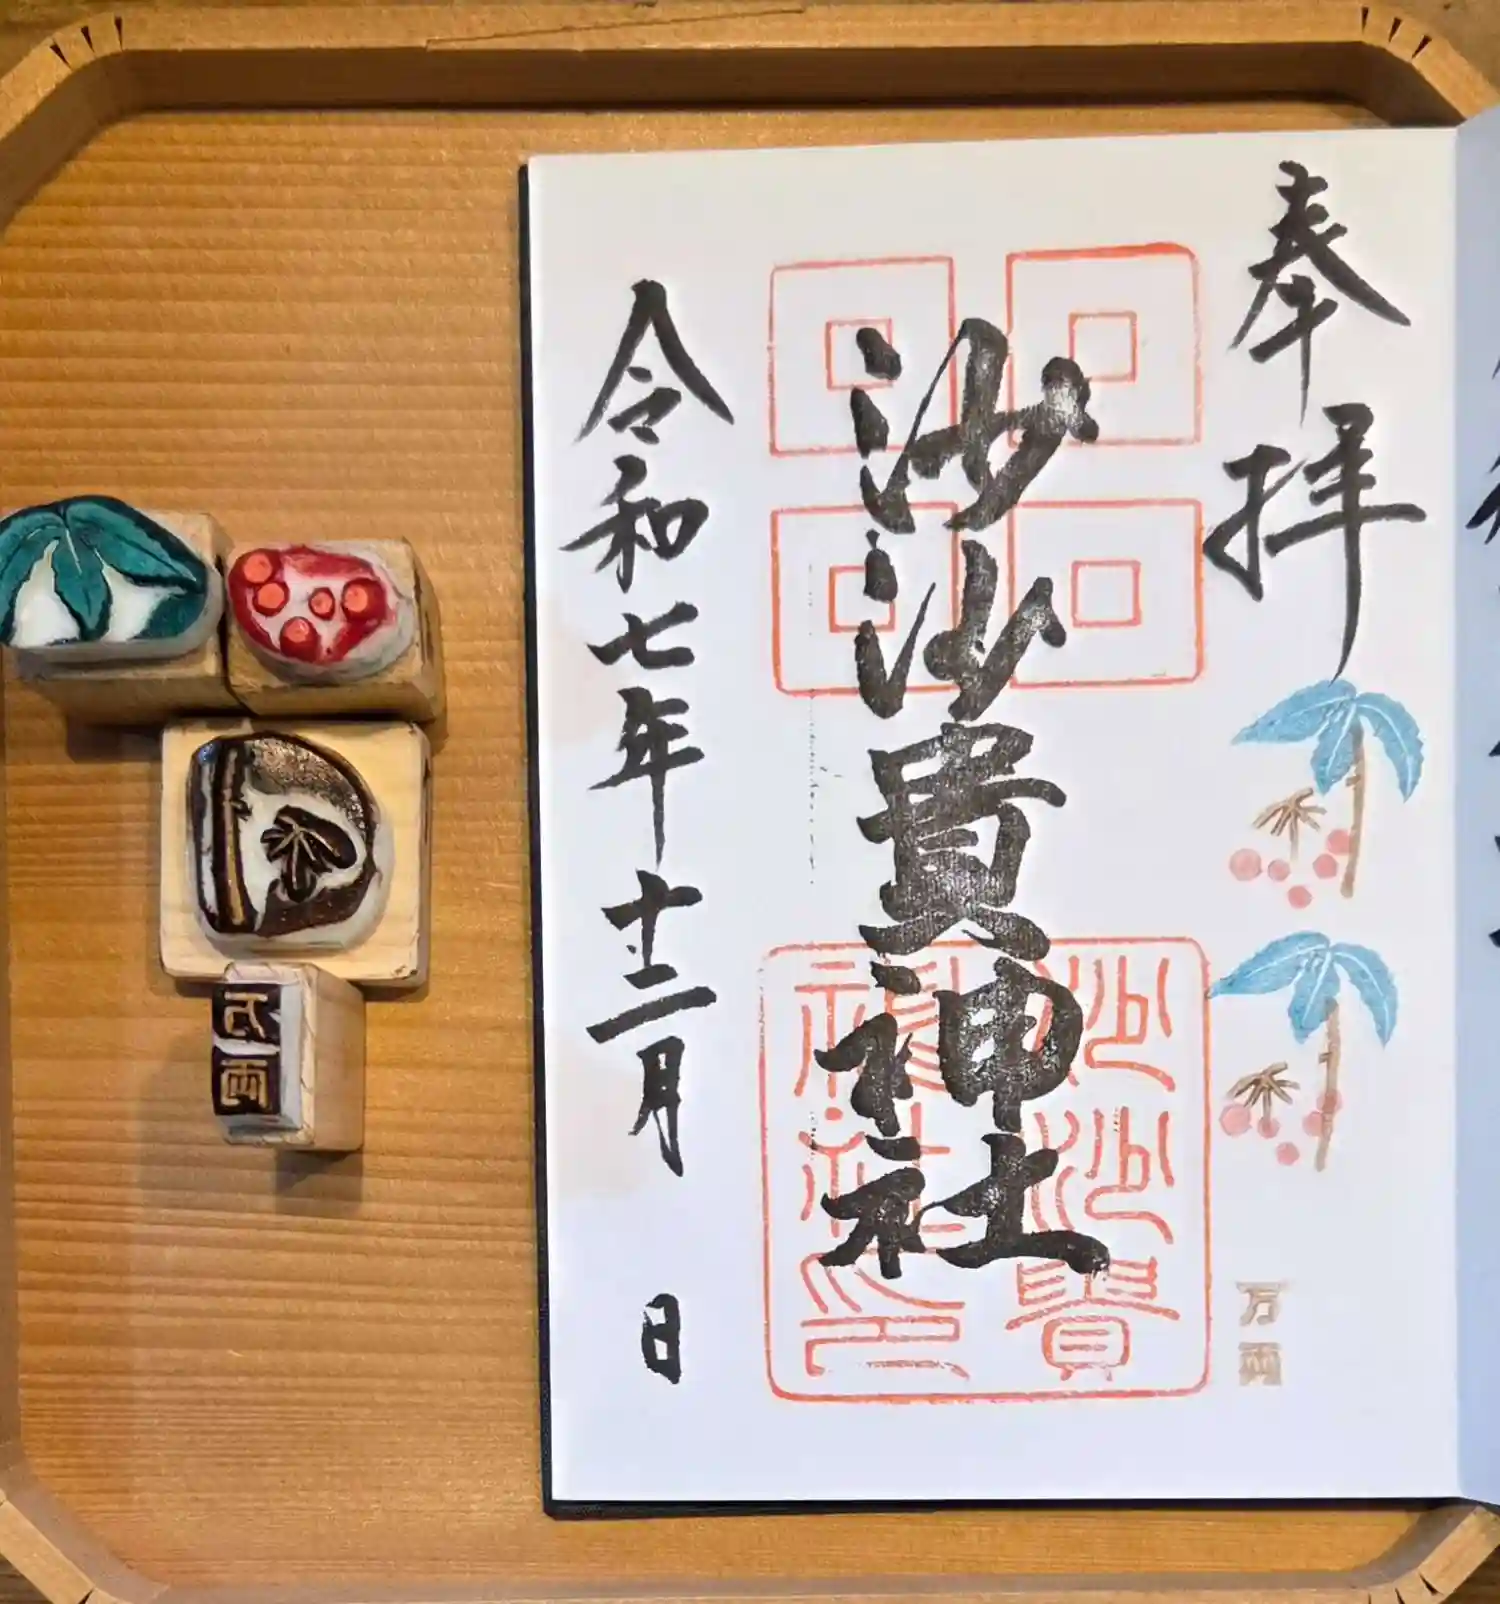 奉拝
沙沙貴神社
沙沙貴
神社之印
令和七年十二月 日
万両
万両